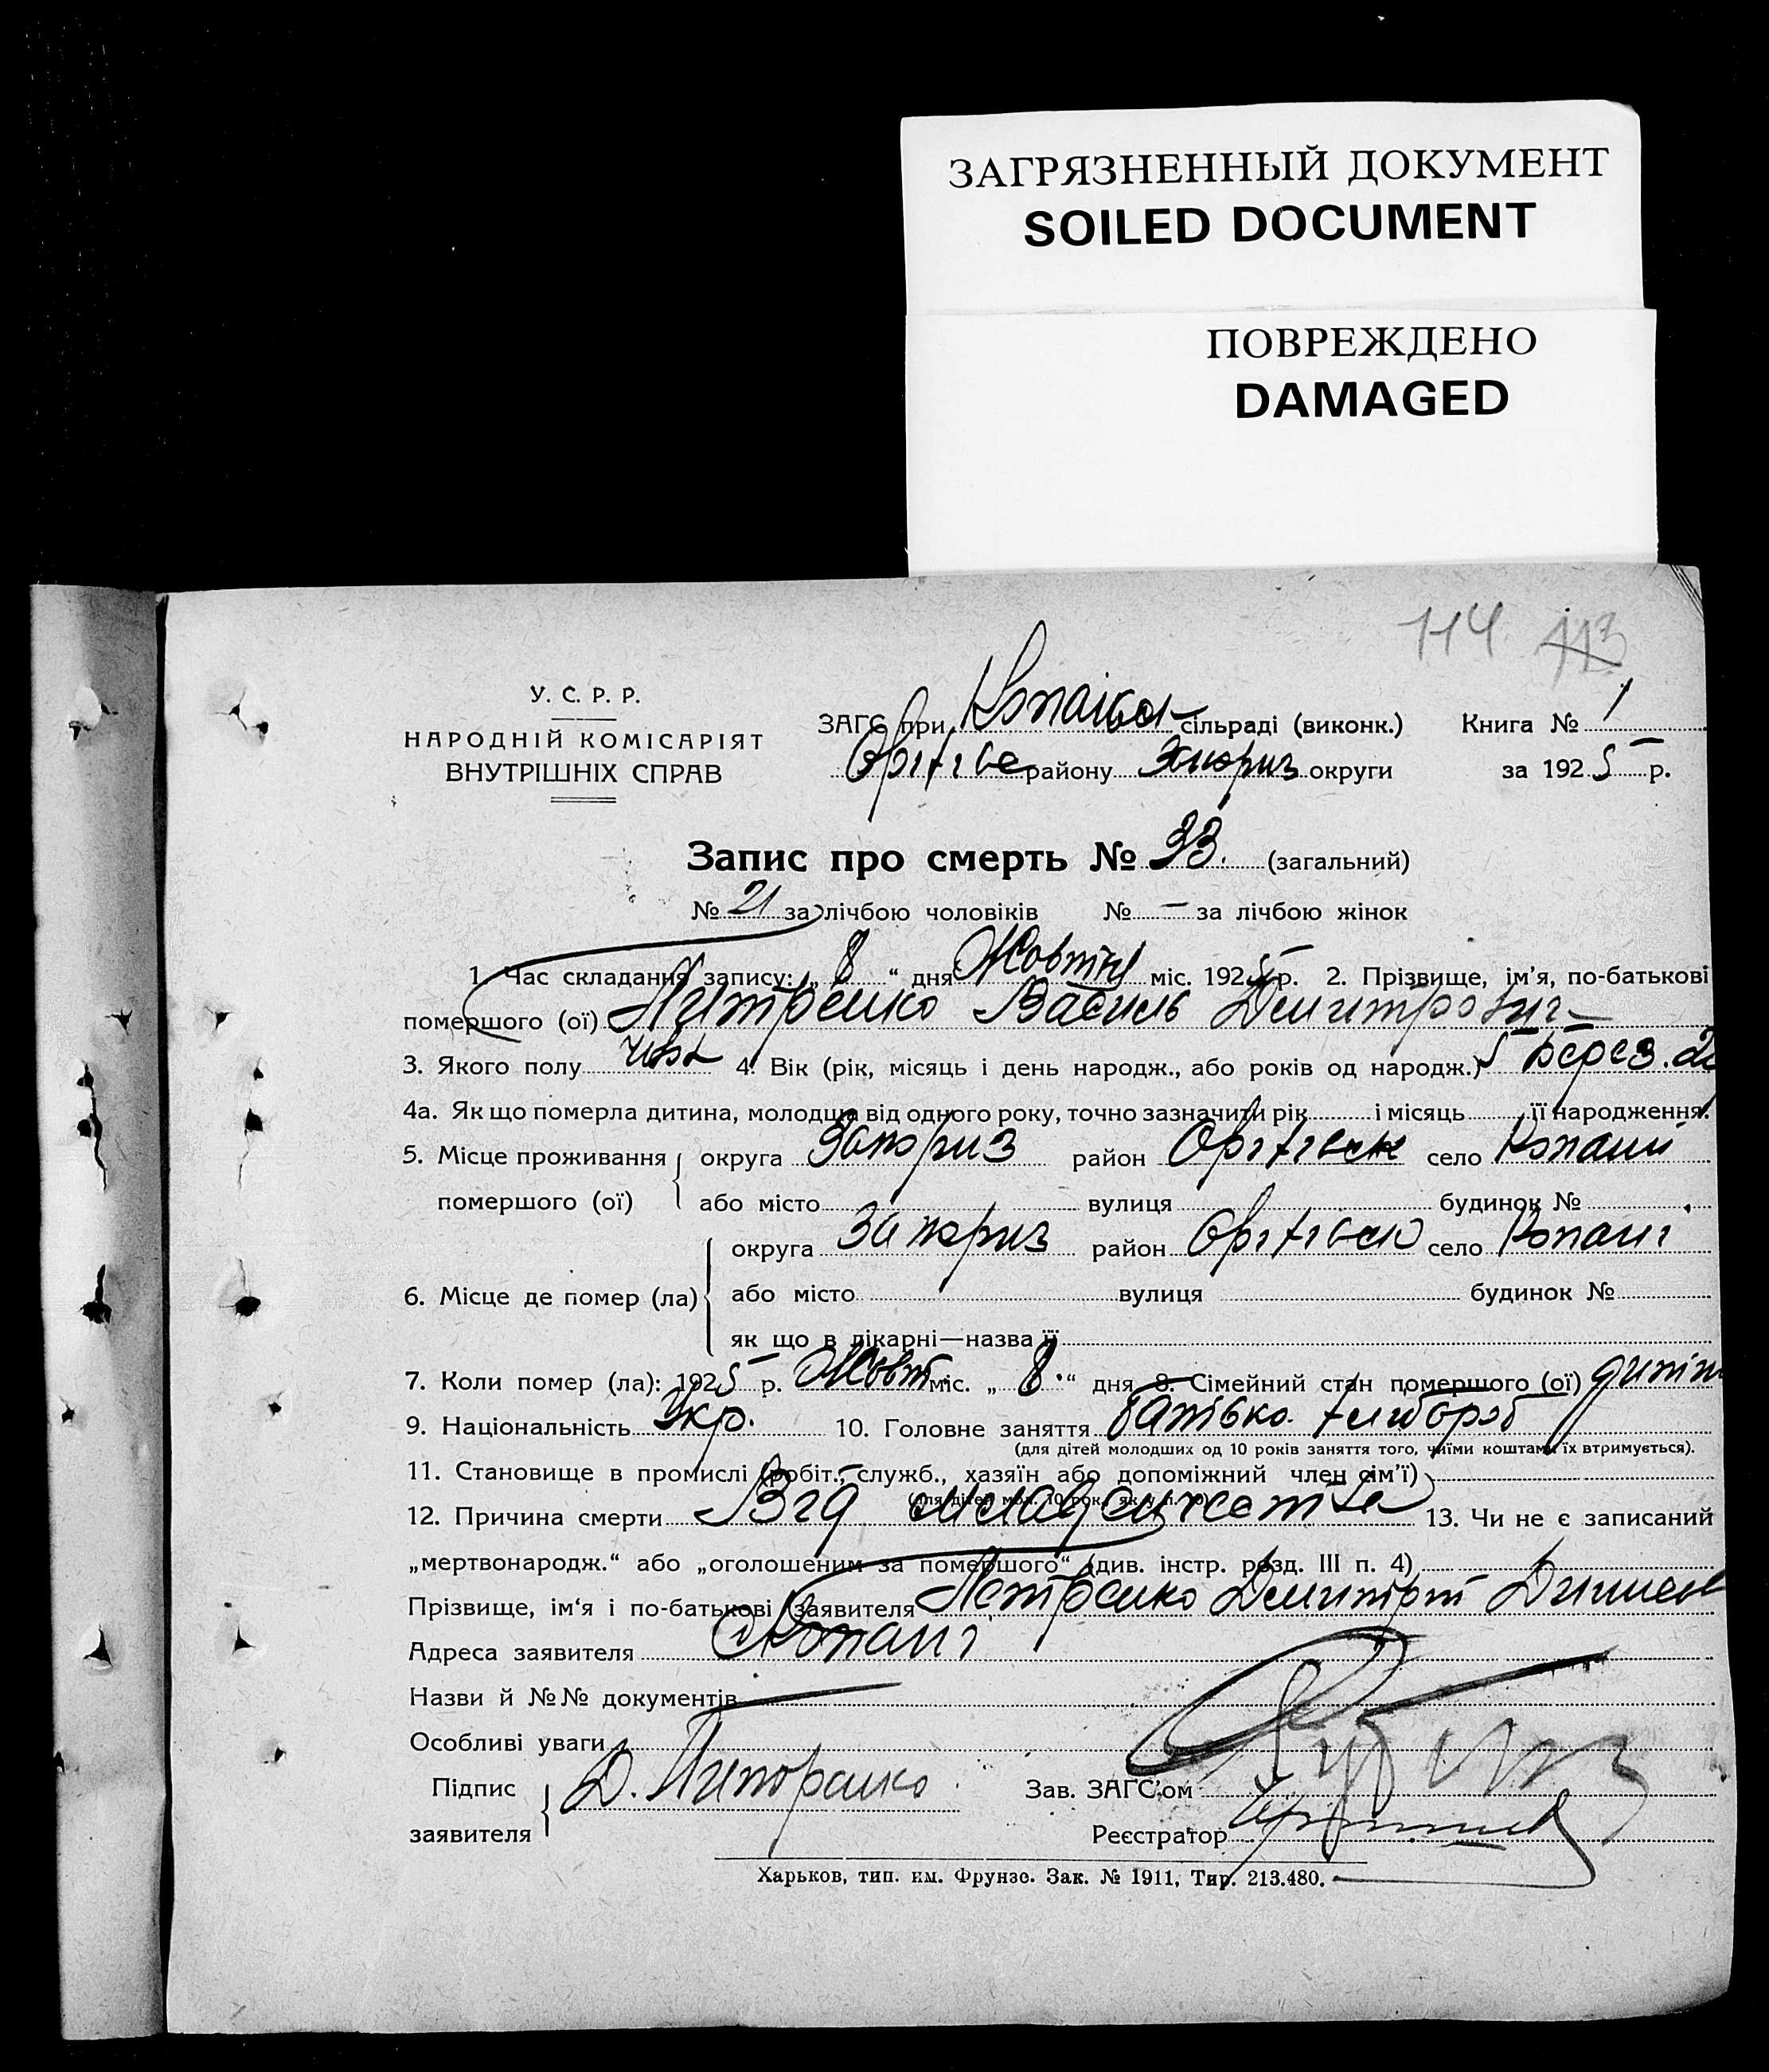 ЗАГРЯЗНЕННЫЙ ДОКУМЕНТ
SOILED DOCUMENT
ПОВРЕЖДЕНО
DAMAGED
114 113
У. С. Р. Р.
НАРОДНІЙ КОМІСАРІЯТ
ВНУТРІШНІХ СПРАВ
ЗАГС при Копанськ сільраді (виконк.) Книга № 1
Оріхівс району Запориз округи за 1925 р.
Запис про смерть № 33. (загальний)
№ 21 за лічбою чоловіків № — за лічбою жінок
1. Час складання запису: „ 8 “ дня Жовтня міс. 1925 р. 2. Прізвище, ім'я, по-батькові
помершого (ої) Василь Дмитрович
3. Якого полу чол 4. Вік (рік, місяць і день народж., або років од народж.) 5 Берез. 2
4а. Як що померла дитина, молодша від одного року, точно зазначити рік і місяць її народження.
5. Місце проживання округа Запориз район Оріхівськ село Копани
помершого (ої) або місто вулиця будинок №
округа Запориз район Оріхівськ село Копані
6. Місце де помер (ла) або місто вулиця будинок №
як що в лікарні—назва її
7. Коли помер (ла): 1925 р. Жовт міс. „ 8. “ дня 8. Сімейний стан помершого (ої) дитин
9. Національність Укр. 10. Головне заняття батько хлібороб
(для дітей молодших од 10 років заняття того, чиїми коштами їх втримується).
11. Становище в промислі (робіт., служб., хазяїн або допоміжний член сім'ї)
(для дітей мол. 10 рок. як у п. 10)
12. Причина смерти Від младенчества 13. Чи не є записаний
„мертвонародж.“ або „оголошеним за помершого“ (див. інстр. розд. III п. 4)
Прізвище, ім‘я і по-батькові заявителя Дмитро
Адреса заявителя Копані
Назви й №№ документів —
Особливі уваги
Підпис Д. Зав. ЗАГС'ом
заявителя Реєстратор
Харьков, тип. им. Фрунзе. Зак. № 1911, Тир. 213.480.